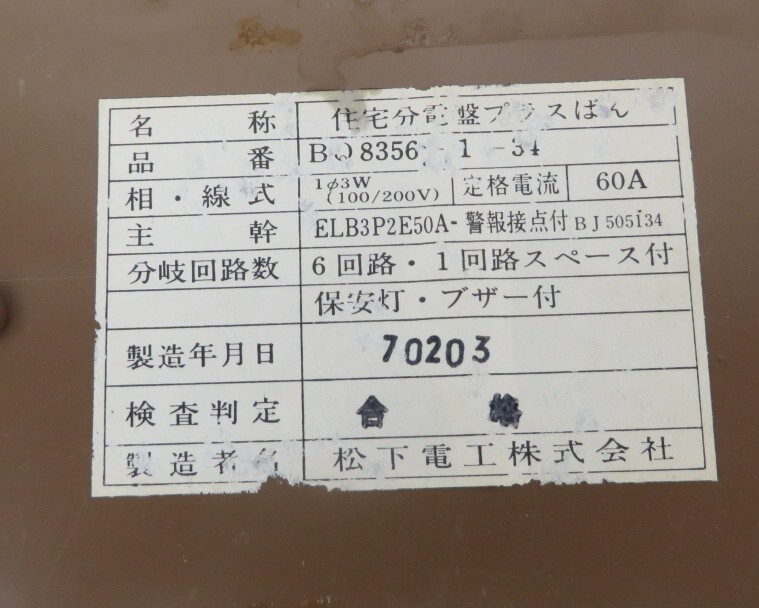 名称 住宅分電盤プラスばん
品番 BQ8356-1-34
相・線式 1φ3W (100/200V) 定格電流 60A
主幹 ELB3P2E50A-警報接点付 BJ505134
分岐回路数 6回路・1回路スペース付
保安灯・ブザー付
製造年月日 70203
検査判定 合格
製造者名 松下電工株式会社